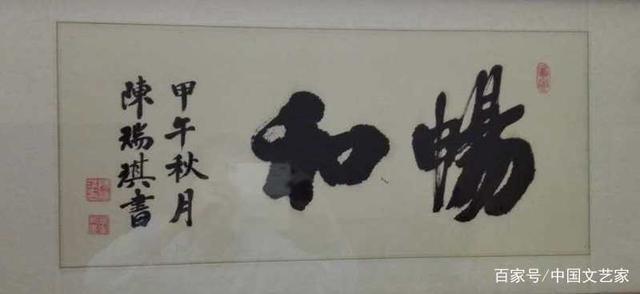 暢和
甲午秋月
陳瑞琪書
百家号/中国文艺家